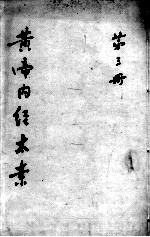 第三册
黄帝内经太素